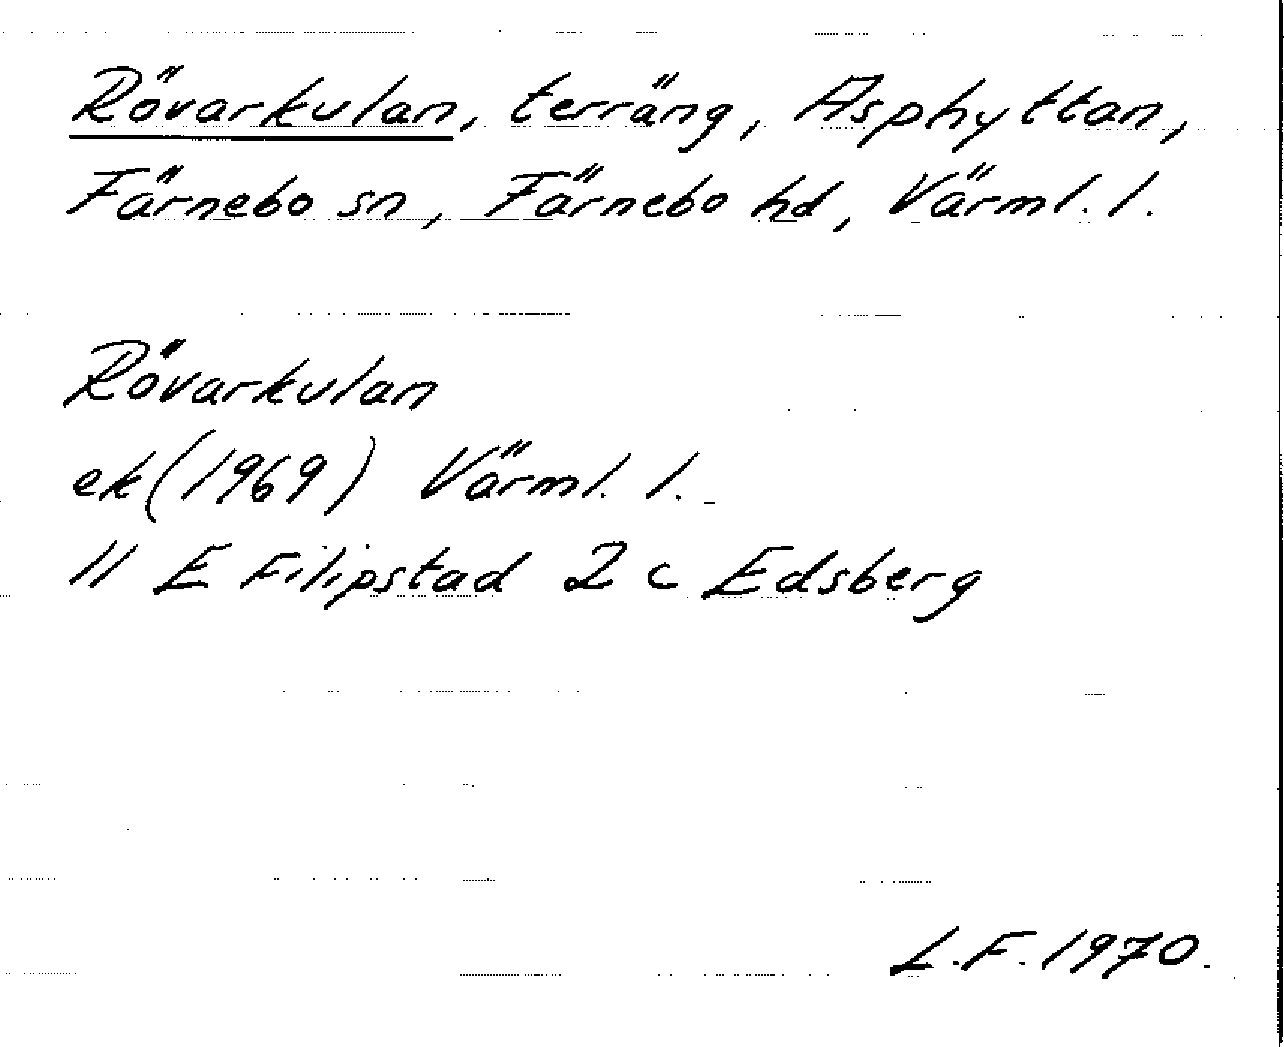 Rövarkulan, terräng, Asphyttan,
Färnebo sn, Färnebo hd, Värml. l.
Rövarkulan
ek (1969) Värml. l.
11 E Filipstad 2 c Edsberg
L.F. 1970.